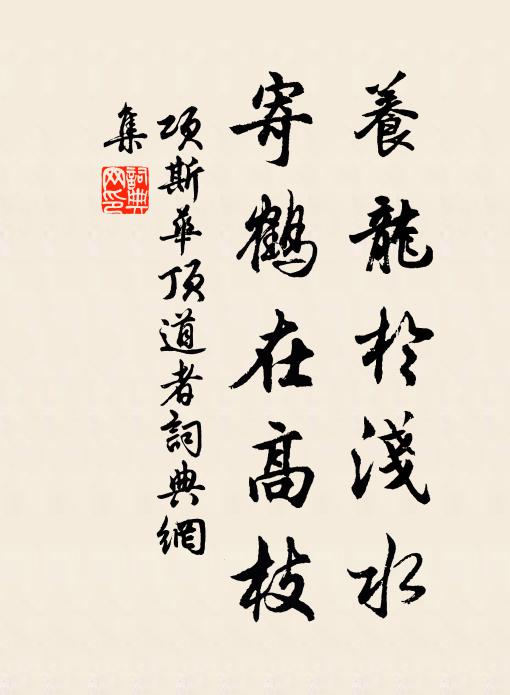 養龍於淺水
寄鶴在高枝
項斯華頂道者詞典網
集
詞典
网印